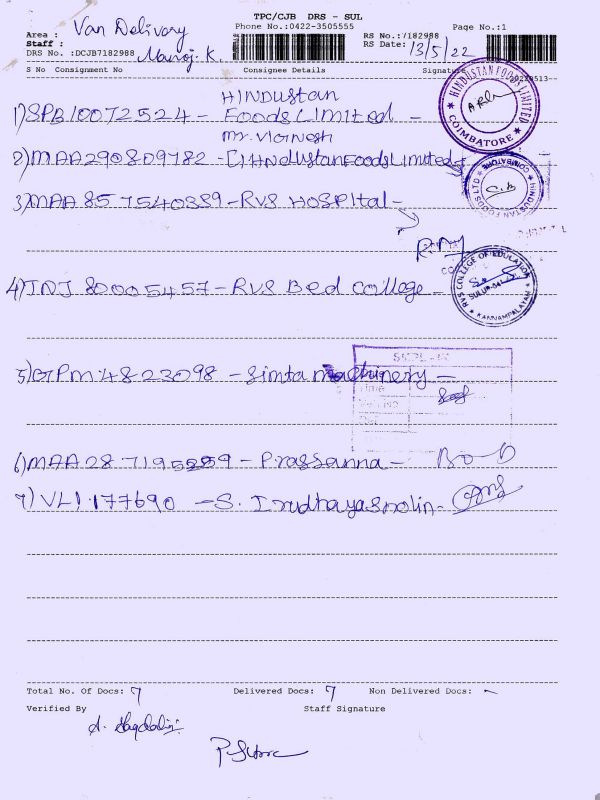 TPC/CJB DRS - SUL
Phone No.:0422-3505555
Page No.:1
Area : Van Delivery
RS No.:7182988
Staff : Manoj. K.
RS Date: 13/5/22
DRS No. :DCJB7182988
S No Consignment No Consignee Details Signature
HINDUSTAN
1) SPB10072524 - FOODS LIMITED -
Mr. VIGNESH
HINDUSTAN FOODS LIMITED
COIMBATORE
2) MAA290809782 - HINdUSTAN FOODS LIMITED
HINDUSTAN FOODS LTD
COIMBATORE
3) MAA857540339 - RVS HOSPITAL -
4) TNJ 80005457 - RVS Bed college -
RVS COLLEGE OF EDUCATION
SULUR-641
KANNAMPALAYAM
5) GTPM 4823098 - Simta machinery -
6) MAA287195259 - Prassanna -
7) VLI 177690 - S. Irudhayasmolin -
Total No. Of Docs: 7 Delivered Docs: 7 Non Delivered Docs: -
Verified By Staff Signature